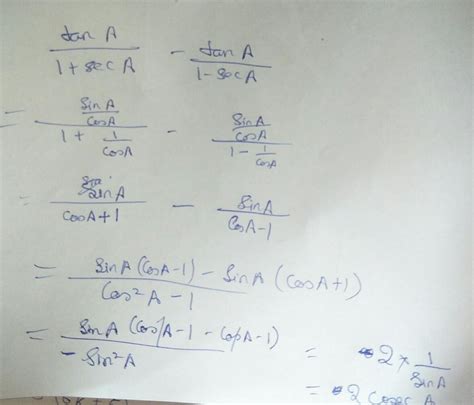 tan A / 1 + sec A - tan A / 1 - sec A
= sin A / cos A / 1 + 1 / cos A - sin A / cos A / 1 - 1 / cos A
= sin A / cos A + 1 - sin A / cos A - 1
= sin A (cos A - 1) - sin A (cos A + 1) / cos² A - 1
= sin A (cos A - 1 - cos A - 1) / - sin² A = 2 × 1 / sin A
= 2 cosec A